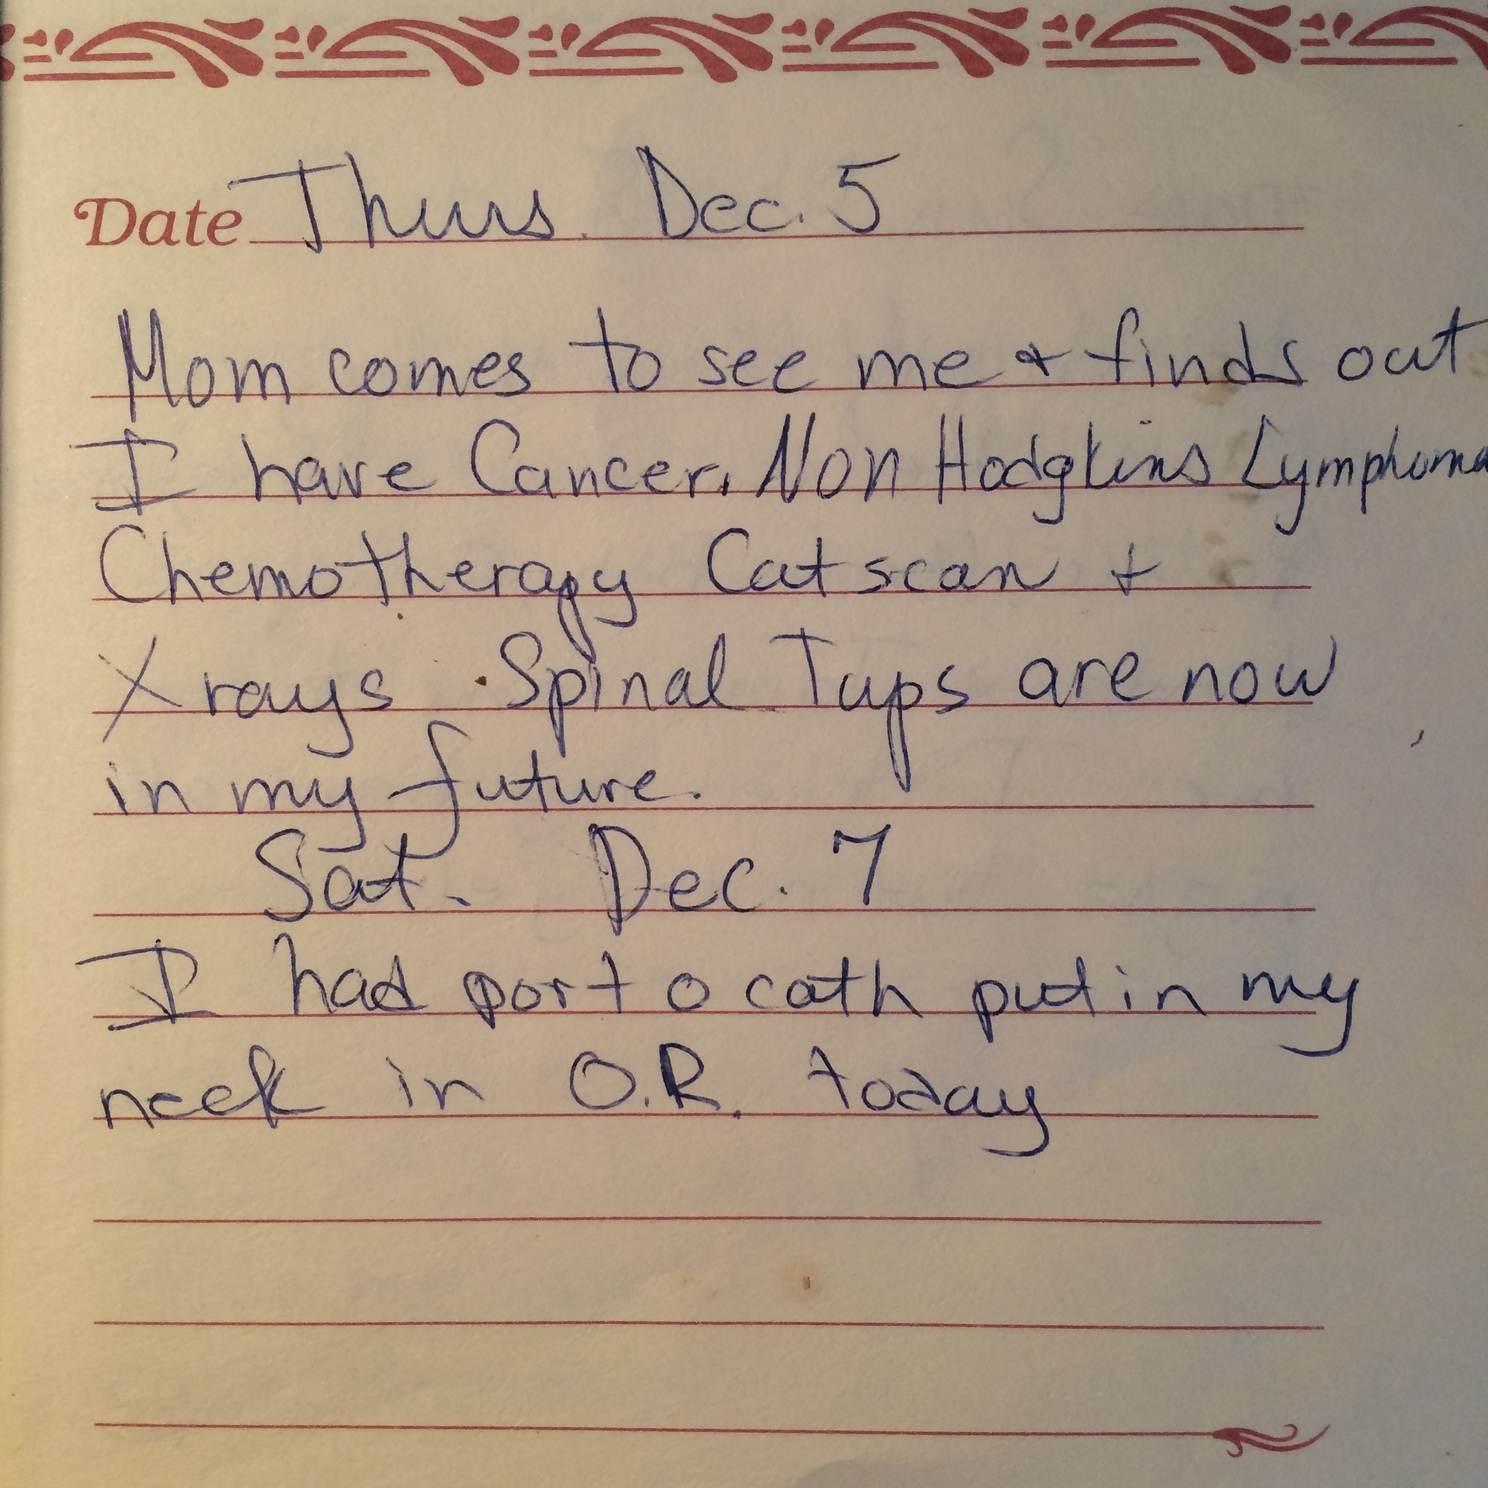 Date Thurs. Dec. 5
Mom comes to see me & finds out
I have Cancer. Non Hodgkins Lymphoma
Chemotherapy Cat scan +
X rays. Spinal Taps are now
in my future.
Sat. Dec. 7
I had port o cath put in my
neck in O.R. today